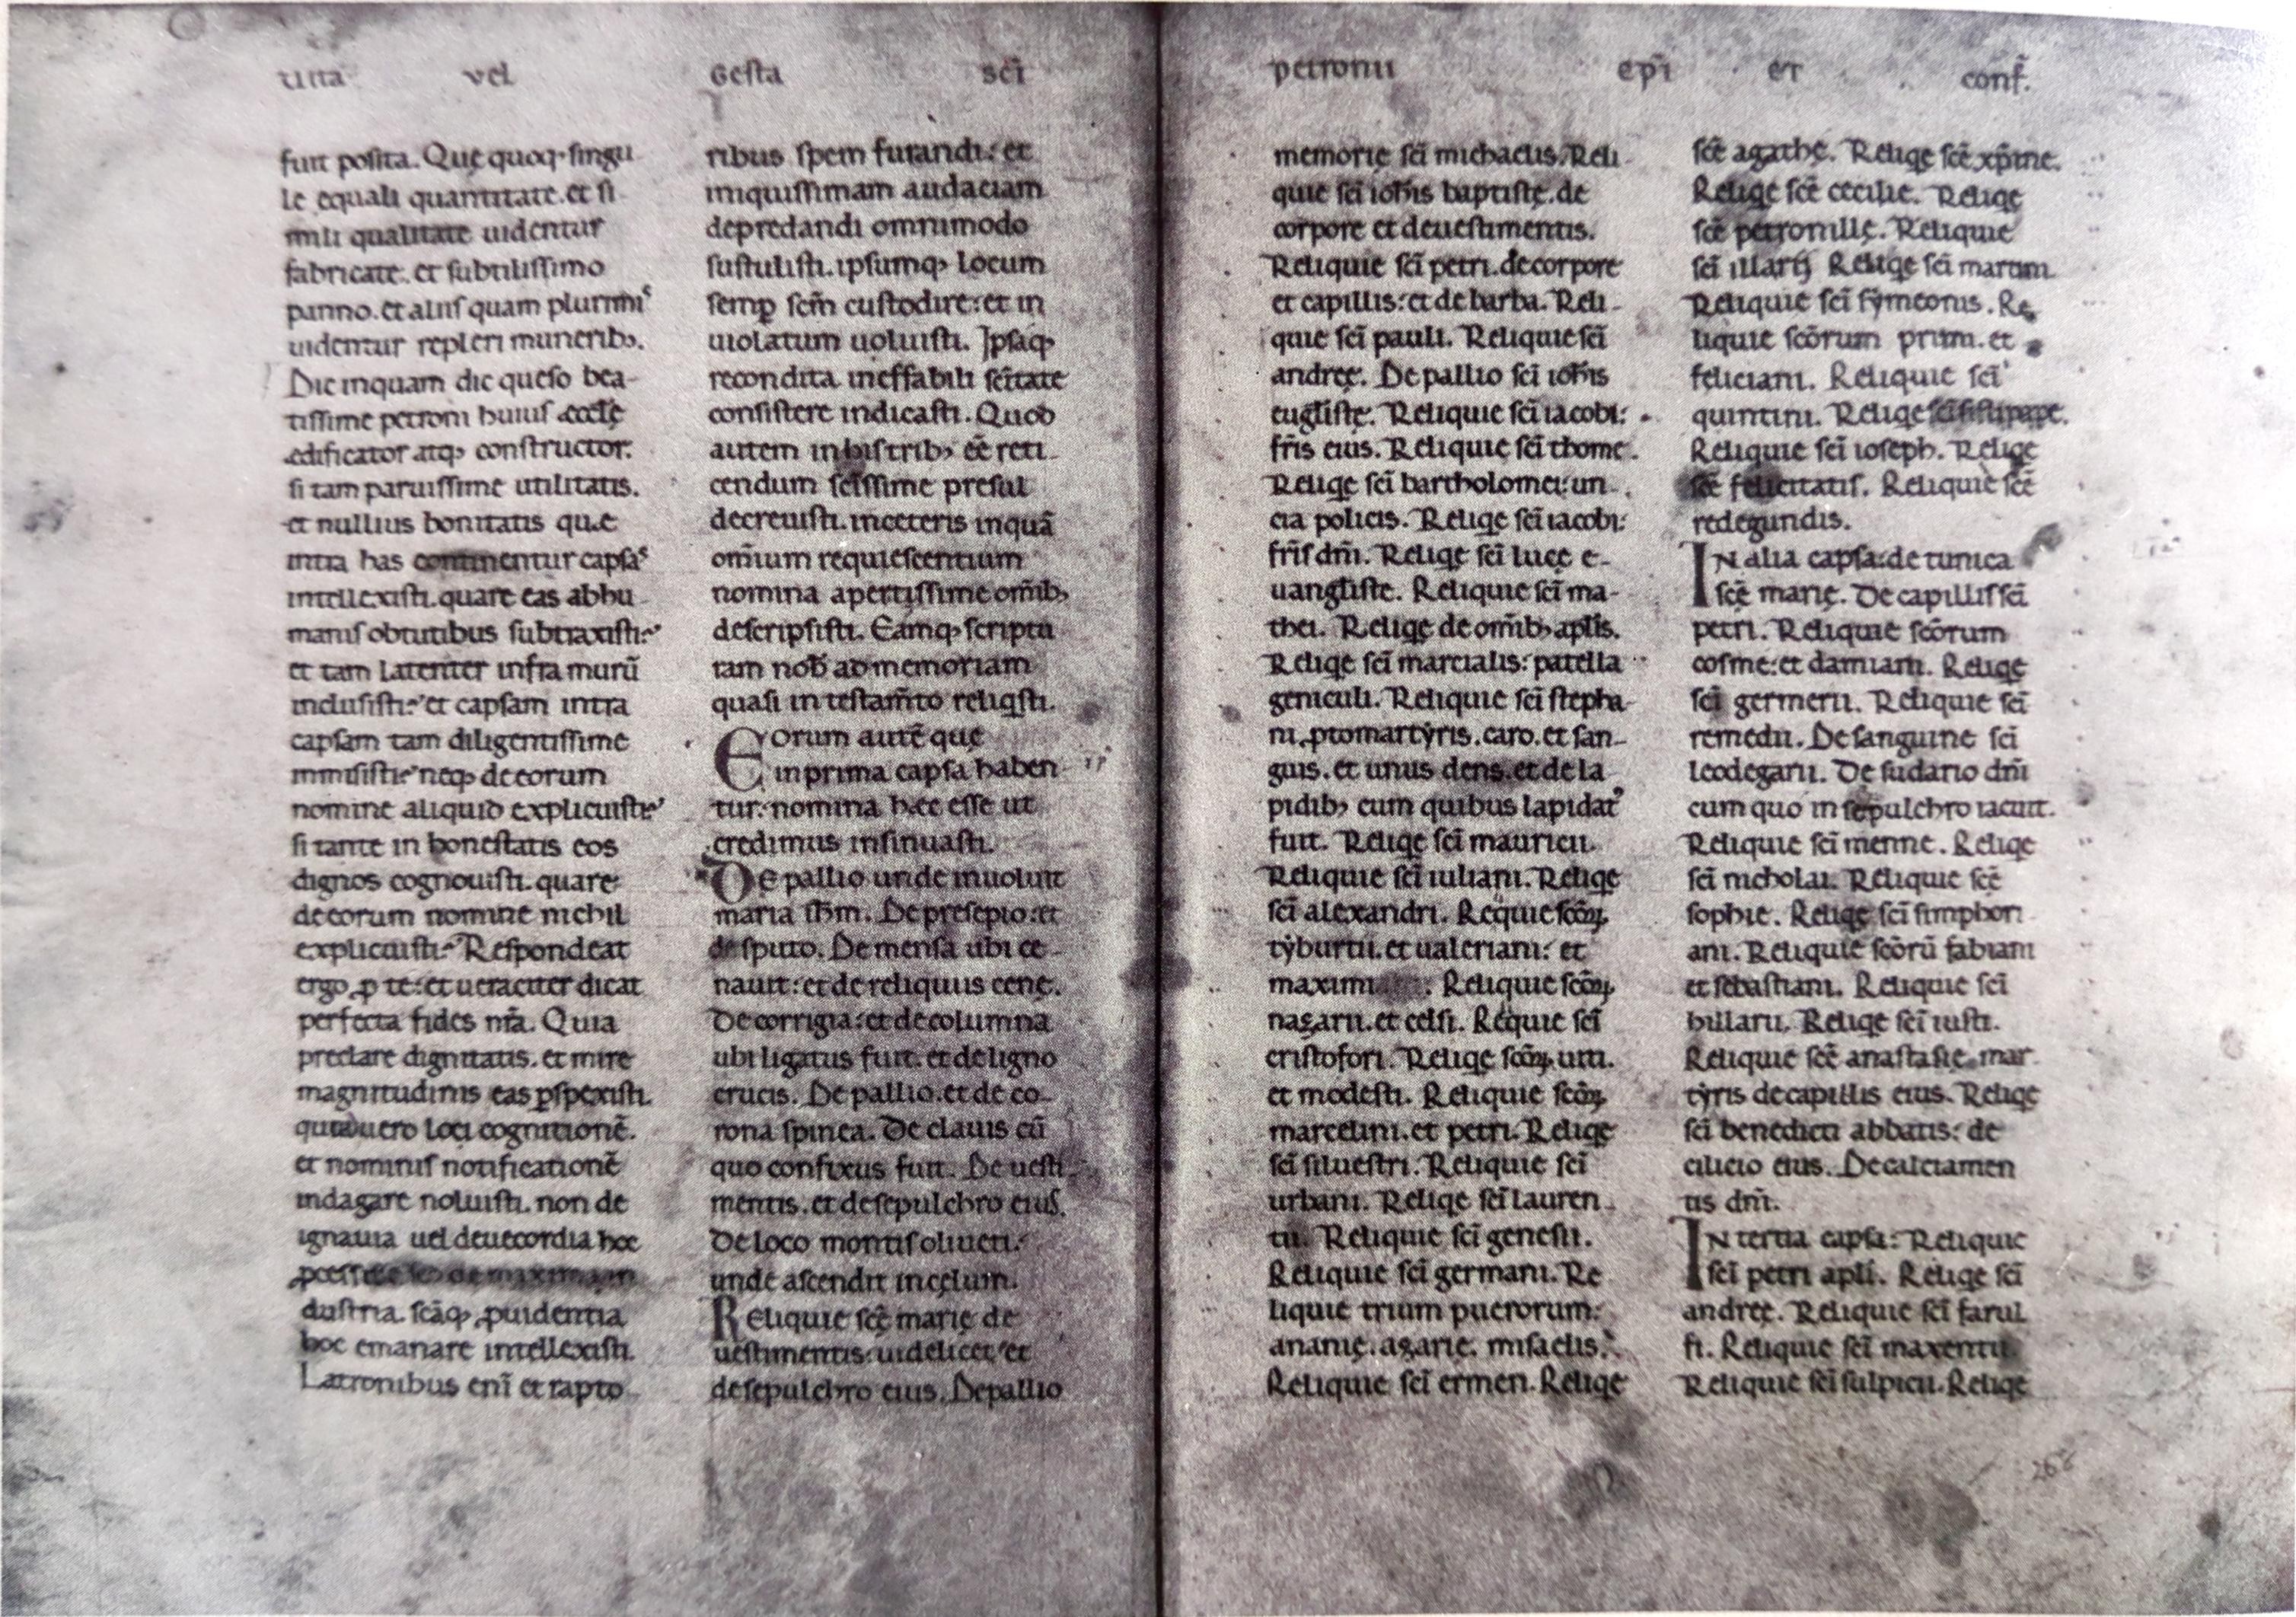 uita vel Gesta sc̄i
fuit posita. Quę quoq; singu
le equali quantitate. et si
mili qualitate uidentur
fabricate. et subtilissimo
panno. et aliis quam plurimis
uidentur repleri munerib;.
Dic inquam dic queso bea-
tissime petroni huius æcclę
ędificator atq; constructor.
si tam paruissime utilitatis.
et nullius bonitatis quæ
intra has continentur capsas
intellexisti. quare eas ab hu
manis obtutibus subtraxisti?
et tam latenter infra murū
inclusisti? et capsam intra
capsam tam diligentissime
inmisisti? neq; de eorum
nomine aliquid explicuisti?
si tante in honestatis eos
dignos cognouisti. quare
de eorum nomine nichil
explicuisti? Respondeat
ergo ꝓ te: et ueraciter dicat
perfecta fides nr̄a. Quia
preclare dignitatis. et mire
magnitudinis eas ꝑspexisti.
quia uero loci cognitionē.
et nominis notificationē
indagare noluisti. non de
ignauia uel deuecordia hoc
ꝓcessisse de maxima in
dustria. sc̄aq; ꝓuidentia
hoc emanare intellexisti.
Latronibus eni̅ et rapto
ribus spem furandi: et
iniquissimam audaciam
depredandi omnimodo
sustulisti. ipsumq; locum
semꝑ sc̄m custodire: et in
uiolatum uoluisti. Ipsaq;
recondita ineffabili sc̄itate
consistere indicasti. Quod
autem in his trib; eē reti
cendum sc̄issime presul
decreuisti. in ceteris inquā
om̄ium requiescentium
nomina apertissime om̄ib;
descripsisti. Eamq; scriptu
ram nob̄ ad memoriam
quasi in testam̄to reliqsti.
Eorum autē que
in prima capsa haben
tur: nomina hæc esse ut
credimus insinuasti.
De pallio unde inuoluit
maria ih̄m. De presepio: et
de sputo. De mensa ubi ce-
nauit: et de reliquiis cenę.
De corrigia: et de columna
ubi ligatus fuit. et de ligno
crucis. De pallio. et de co-
rona spinea. De clauis cū
quo confixus fuit. De uesti
mentis. et de sepulchro eius.
De loco montis oliueti.
unde ascendit in cęlum.
Reliquie sc̄ę marię de
uestimentis. uidelicet et
de sepulchro eius. De pallio
petronii ep̄i et conf̄.
memorię sc̄i michaelis. Reli
quie sc̄i ioh̄is baptistę. de
corpore et de uestimentis.
Reliquie sc̄i petri. de corpore
et capillis: et de barba. Reli
quie sc̄i pauli. Reliquie sc̄i
andreę. De pallio sc̄i ioh̄is
eūgl̄istę. Reliquie sc̄i iacobi:
fr̄is eius. Reliquie sc̄i thome.
Reliqe sc̄i bartholomei: un
cia policis. Reliqe sc̄i iacobi:
fr̄is dn̄i. Reliqe sc̄i lucę e-
uangl̄iste. Reliquie sc̄i ma-
thei. Reliqe de om̄ib; ap̄lis.
Reliqe sc̄i marcialis: patella
geniculi. Reliquie sc̄i stepha-
ni. ꝓtomartẏris. caro. et san-
guis. et unus dens. et de la
pidib; cum quibus lapidat᾿
fuit. Reliqe sc̄i mauricii.
Reliquie sc̄i iuliani. Reliqe
sc̄i alexandri. Reqie sc̄oꝝ
tẏburtii. et ualeriani: et
maximi. Reliquie sc̄oꝝ
nazarii. et celsi. Reqie sc̄i
cristofori. Reliqe sc̄oꝝ. uiti.
et modesti. Reliquie sc̄oꝝ
marcelini. et petri. Reliqe
sc̄i siluestri. Reliquie sc̄i
urbani. Reliqe sc̄i lauren
tii. Reliquie sc̄i genesii.
Reliquie sc̄i germani. Re
liquie trium puerorum:
ananię. azarię. misaelis.
Reliquie sc̄i ermen. Reliqe
sc̄ē agathę. Reliqe sc̄ē xp̄ine.
Reliqe sc̄ē cecilie. Reliqe
sc̄ē petronillę. Reliquie
sc̄i illarii Reliqe sc̄i martini
Reliquie sc̄i sẏmeonis. Re
liquie sc̄orum primi. et
feliciani. Reliquie sc̄i
quintini. Reliqe sc̄i sisti pape.
Reliquie sc̄i ioseph. Reliqe
sc̄ē felicitatis. Reliquie sc̄ē
redegundis.
In alia capsa: de tunica
sc̄ē marię. De capillis sc̄i
petri. Reliquie sc̄orum
cosme: et damiani. Reliqe
sc̄i germerii. Reliquie sc̄i
remedii. De sanguine sc̄i
leodegarii. De sudario dn̄i
cum quo in sepulchro iacuit.
Reliquie sc̄i menne. Reliqe
sc̄i nicholai. Reliquie sc̄ē
sophie. Reliqe sc̄i simphori
ani. Reliquie sc̄orū fabiani
et sebastiani. Reliquie sc̄i
hillarii. Reliqe sc̄i iusti.
Reliquie sc̄ē anastasie. mar
tẏris de capillis eius. Reliqe
sc̄i benedicti abbatis: de
cilicio eius. De calciamen
tis dn̄i.
In tertia capsa: Reliquie
sc̄i petri apl̄i. Reliqe sc̄i
andreę. Reliquie sc̄i farul
fi. Reliquie sc̄i maxentii
Reliquie sc̄i sulpicii. Reliqe
266